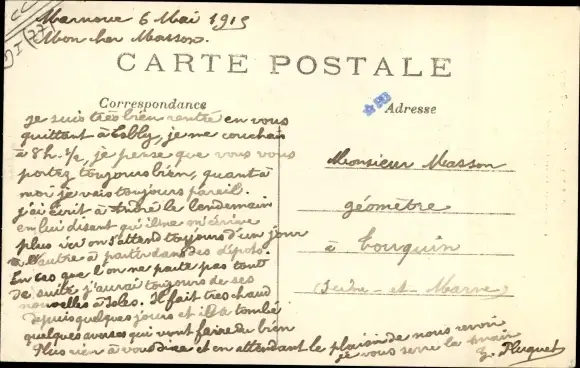 Marnoue 6 Mai 1915
Mon cher Masson.
CARTE POSTALE
Correspondance
Adresse
je suis très bien rentré en vous
quittant à Esbly, je me couchais
à 8h. 1/2, je pense que vous vous
portez toujours bien, quant à
moi je vais toujours pareil.
j'ai écrit à André le lendemain
en lui disant qu'il ne m'écrive
plus ici on s'attend toujours d'un jour
à l'autre à partir dans des dépots.
En cas que l'on ne parte pas tout
de suite j'aurai toujours de ses
nouvelles à Isles. Il fait très chaud
depuis quelques jours et il a tombé
quelques averses qui vont faire du bien
Plus rien à vous dire et en attendant le plaisir de nous revoir
je vous serre la main
Pluquet
Monsieur Masson
géomètre
à Touquin
(Seine-et-Marne)